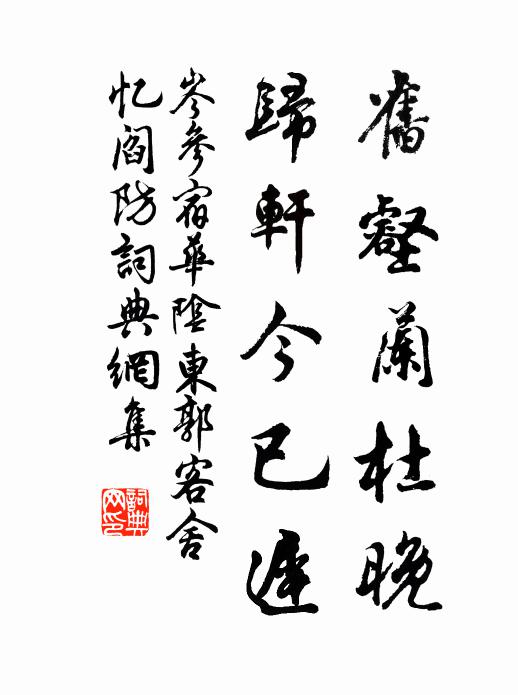 舊壑蘭杜晚
歸軒今已遲
岑參宿華陰東郭客舍
忆閻防詞典網集
詞典网印